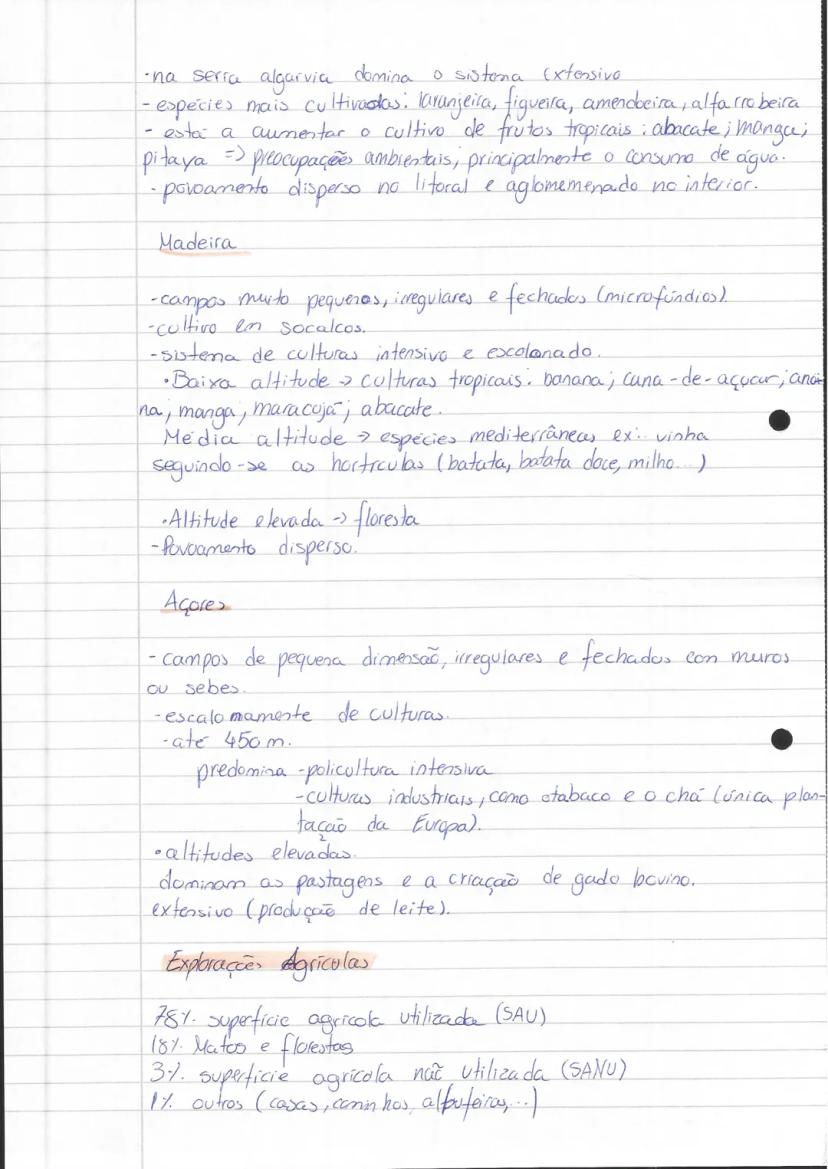 ·na serra algarvia domina o sistema extensivo
-espécies mais cultivadas: laranjeira, figueira, amendoeira, alfarrobeira
- está a aumentar o cultivo de frutos tropicais: abacate; manga;
pitaya => preocupações ambientais, principalmente o consumo de água.
- povoamento disperso no litoral e aglomemenado no interior.
Madeira
-campos muito pequenos, irregulares e fechados (microfúndios).
-cultivo em socalcos.
-sistema de culturas intensivo e escalonado.
·Baixa altitude -> culturas tropicais: banana; cana-de-açucar; ana-
na; manga; maracujá; abacate.
Média altitude -> espécies mediterrâneas ex: vinha
seguindo-se as hortículas (batata, batata doce, milho...)
·Altitude elevada -> floresta
-Povoamento disperso.
Açores
- campos de pequena dimensão, irregulares e fechados com muros
ou sebes.
-escalonamente de culturas.
-até 450m.
predomina -policultura intensiva
-culturas industriais, como o tabaco e o chá (única plan-
tação da Europa).
·altitudes elevadas.
dominam as pastagens e a criação de gado bovino.
extensivo (produção de leite).
Explorações Agrícolas
78% superfície agrícola utilizada (SAU)
18% Matos e florestas
3% superfície agrícola não utilizada (SANU)
1% outros (casas, caminhos, albufeiras,...)